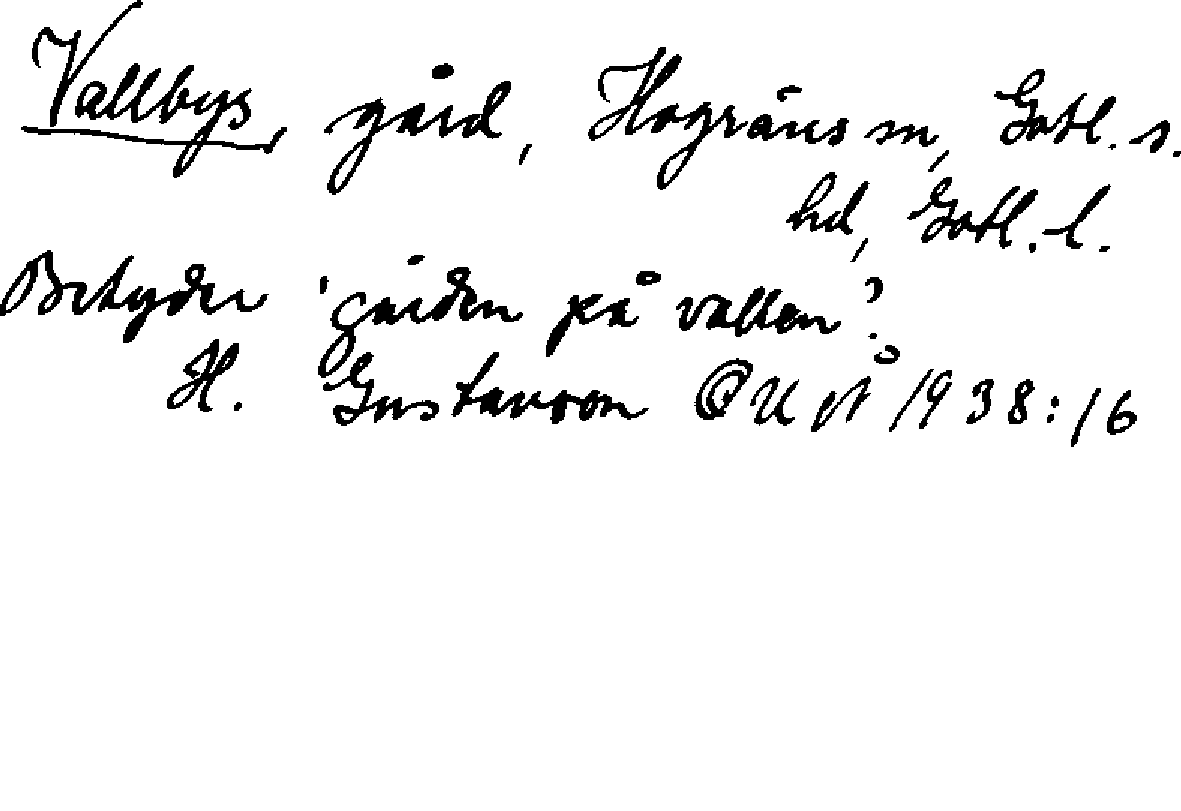 Vallbys, gård, Hogräns sn, Gotl. s.
hd, Gotl. l.
Betyder 'gården på vallen'?
H. Gustavson GUÅ 1938:16